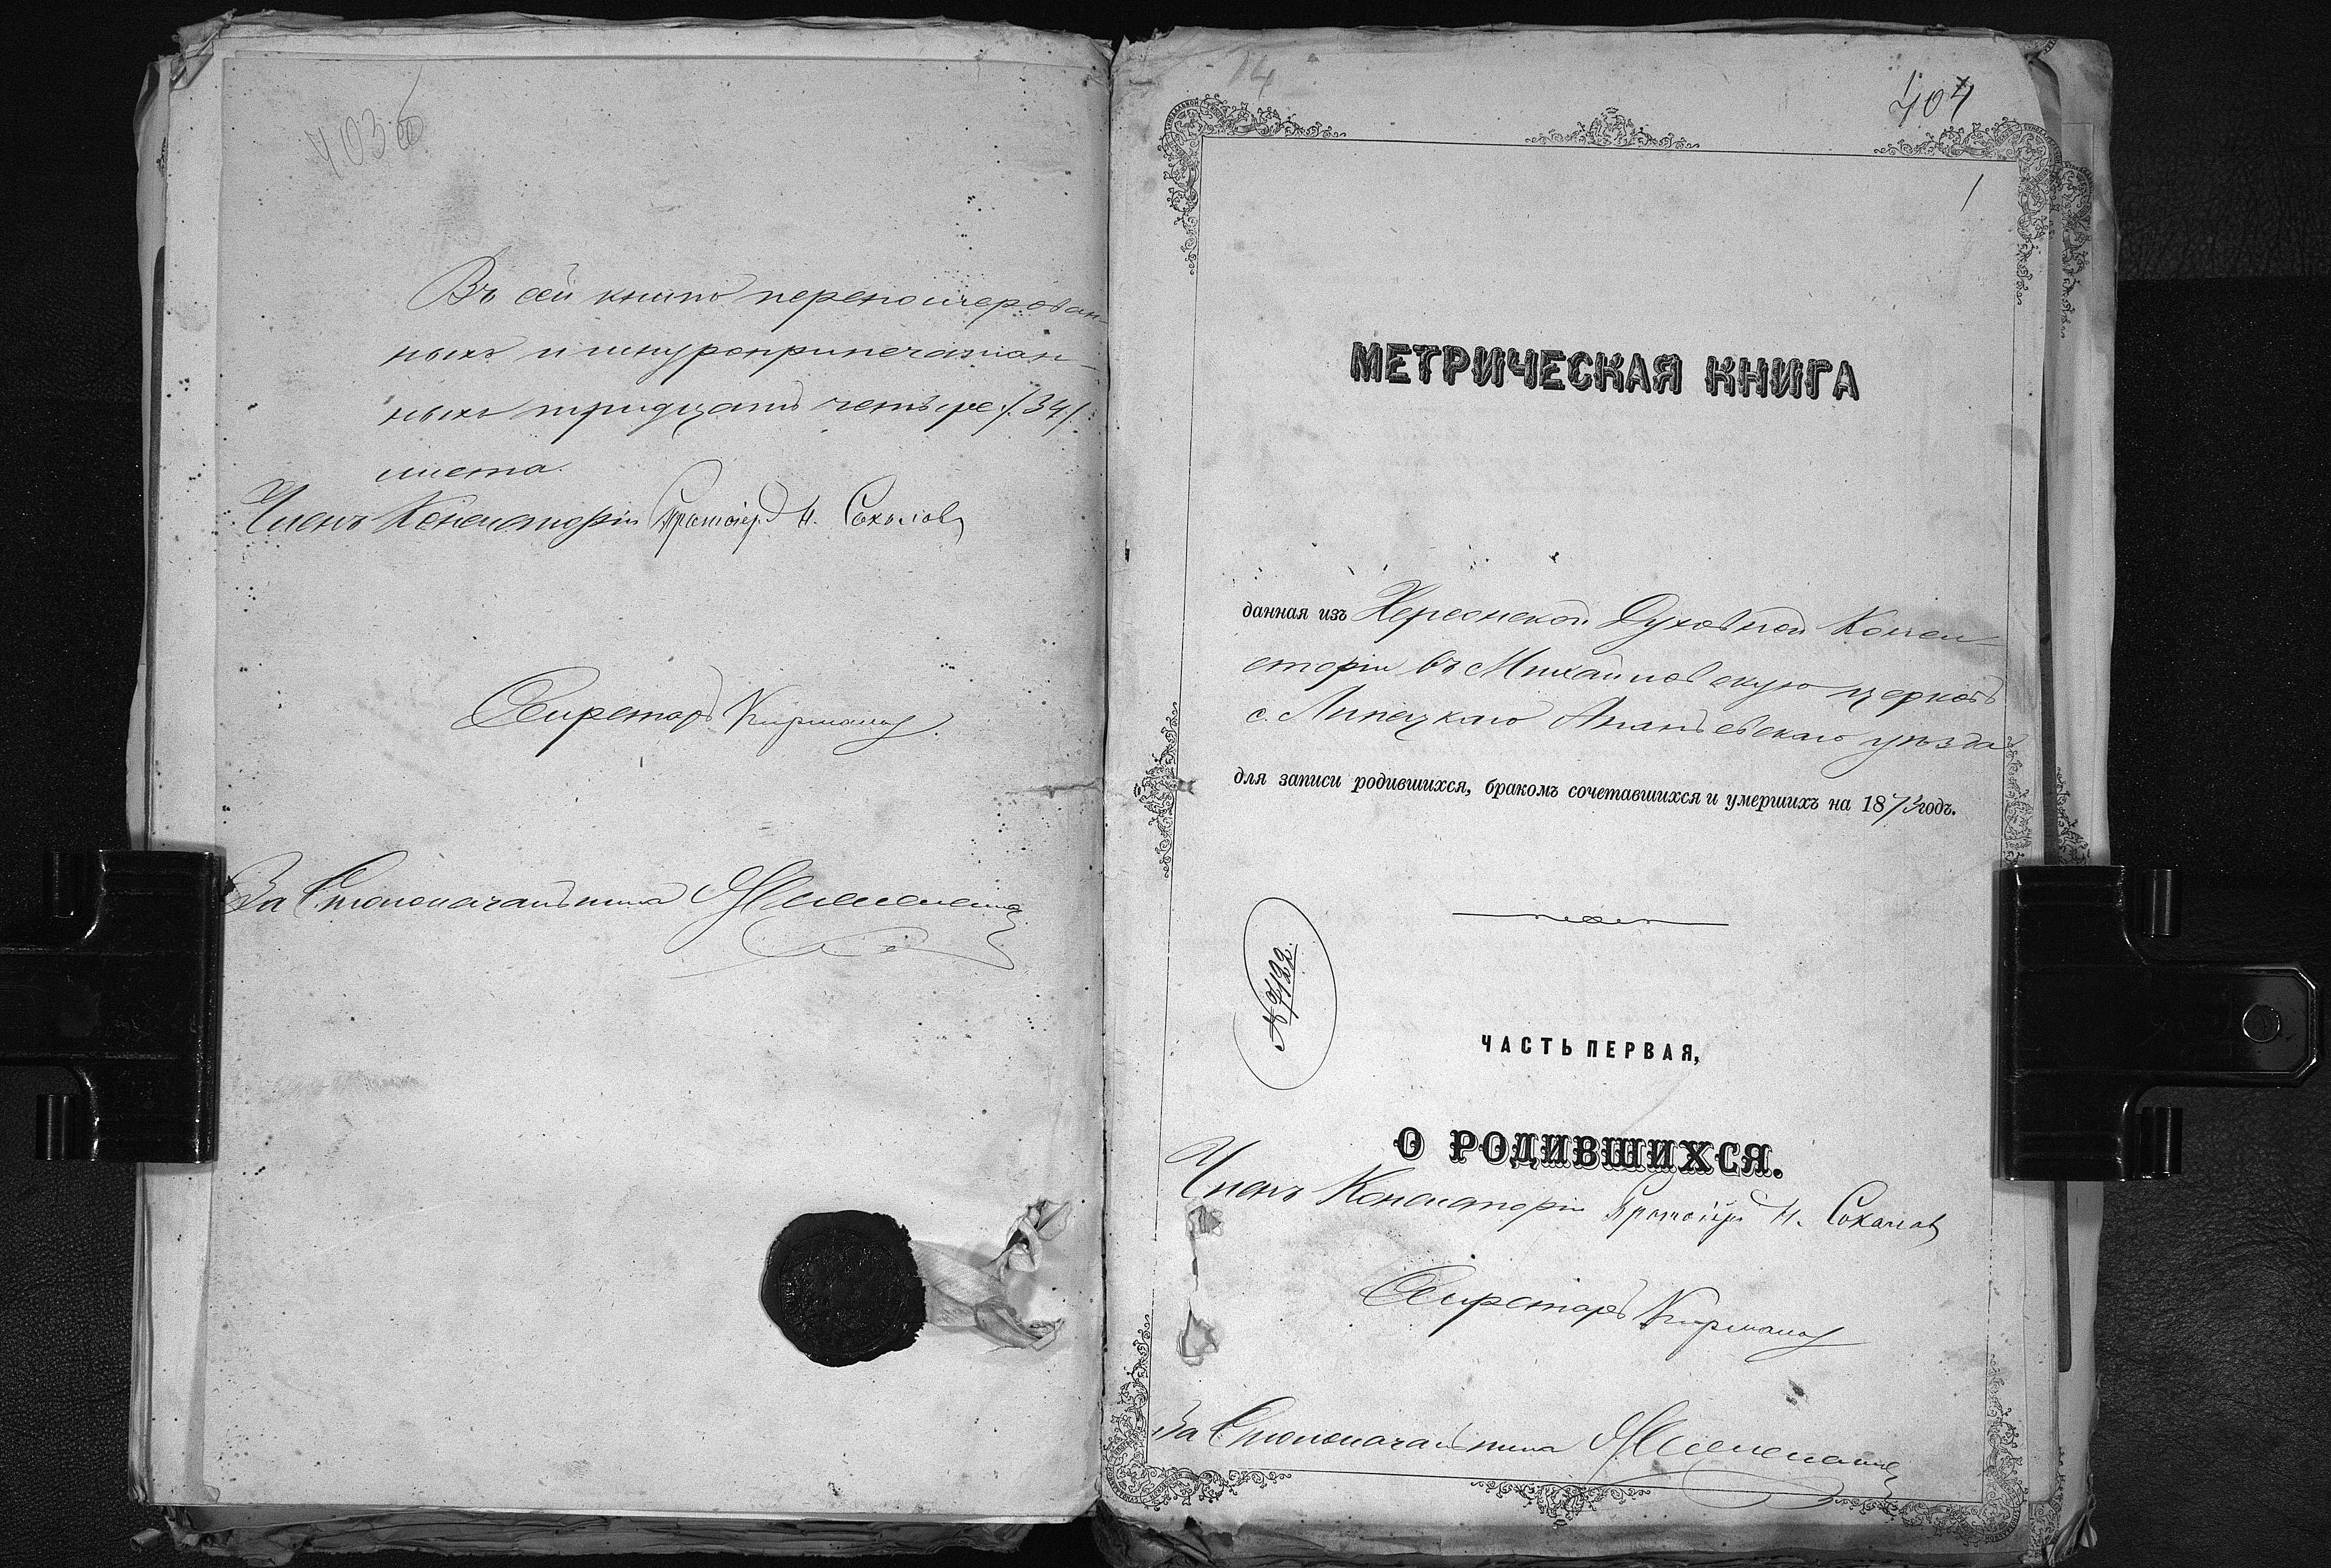 403 об
Въ сей книгѣ перенумерован-
ныхъ и шнуроприпечатан-
ныхъ тридцать четыре /34/
листа.
Членъ Консисторіи Протоіер. Н. Соколовъ
Секретарь
За Столоначальника
14
404
1
МЕТРИЧЕСКАЯ КНИГА
данная изъ Херсонской Духовной Конси-
сторіи въ Михайловскую церковь
с. Липецкаго Ананьевскаго уѣзда
для записи родившихся, бракомъ сочетавшихся и умершихъ на 1873 годъ.
№ 7122.
ЧАСТЬ ПЕРВАЯ,
О РОДИВШИХСЯ.
Членъ Консисторіи Протоіер. Н. Соколовъ
Секретарь
За Столоначальника